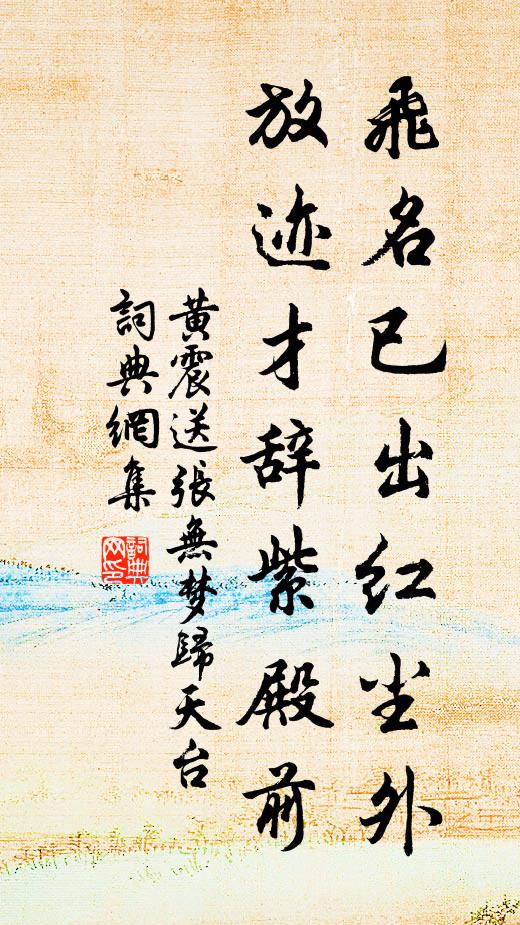 飛名已出红尘外
放迹才辞紫殿前
黄震送張無梦歸天台
詞典網集
詞典网印